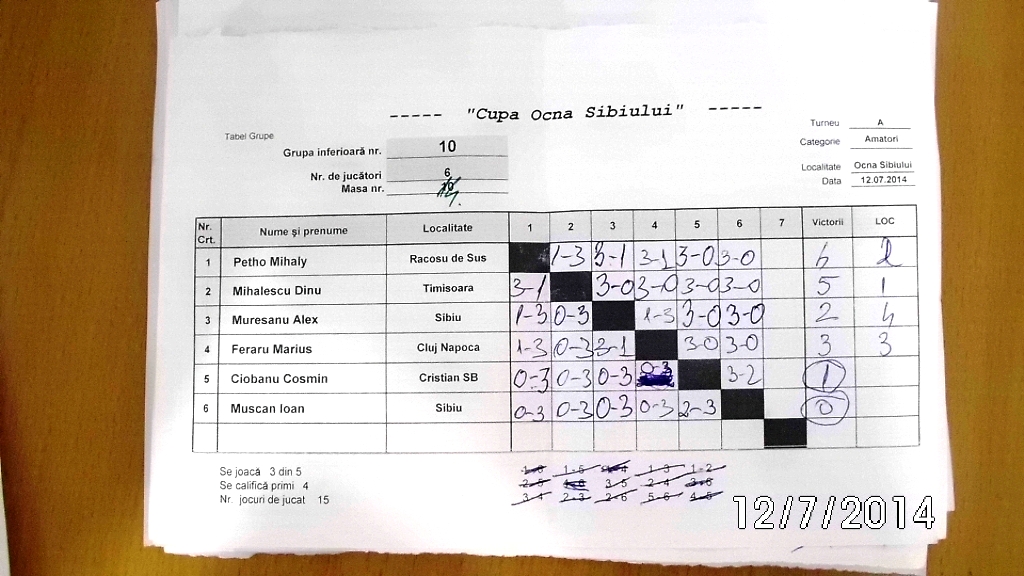 ----- "Cupa Ocna Sibiului" -----
Tabel Grupe
Turneu A
Categorie Amatori
Grupa inferioară nr. 10
Nr. de jucători 6
Masa nr.
Localitate Ocna Sibiului
Data 12.07.2014
Nr. Crt. Nume şi prenume Localitate 1 2 3 4 5 6 7 Victorii LOC
1 Petho Mihaly Racosu de Sus 1-3 3-1 3-1 3-0 3-0 4 2
2 Mihalescu Dinu Timisoara 3-1 3-0 3-0 3-0 3-0 5 1
3 Muresanu Alex Sibiu 1-3 0-3 1-3 3-0 3-0 2 4
4 Feraru Marius Cluj Napoca 1-3 0-3 3-1 3-0 3-0 3 3
5 Ciobanu Cosmin Cristian SB 0-3 0-3 0-3 0-3 3-2 1
6 Muscan Ioan Sibiu 0-3 0-3 0-3 0-3 2-3 0
Se joacă 3 din 5
Se califică primi 4
Nr. jocuri de jucat 15
1-5 1-3 1-2
2-5 3-5 2-4
3-4 2-3 2-6 5-6 4-5
12/7/2014